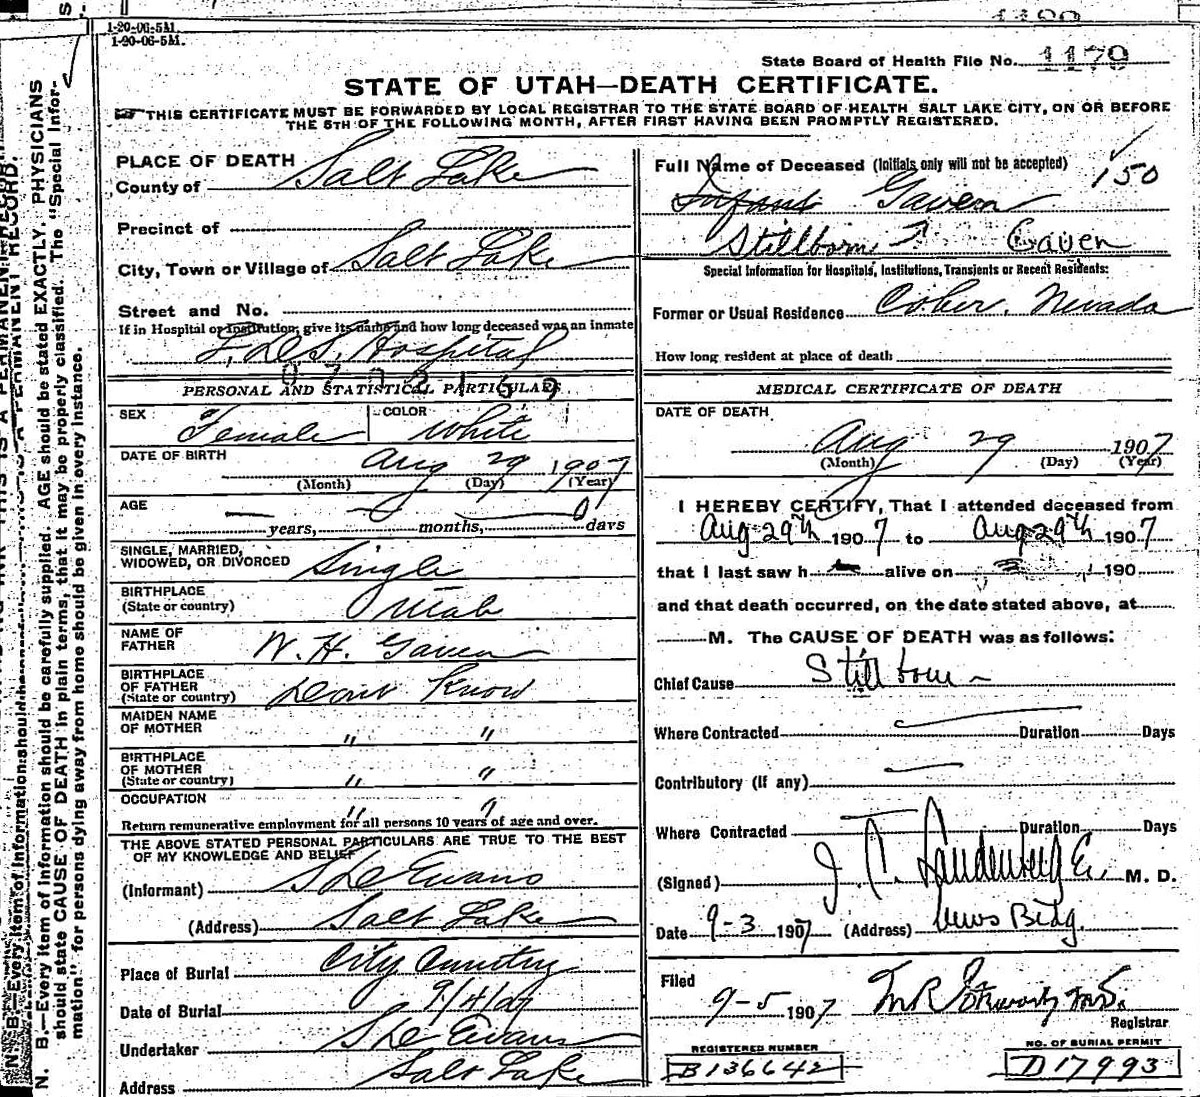 1-20-06-5M.
1-20-06-5M.
State Board of Health File No. 1179
STATE OF UTAH—DEATH CERTIFICATE.
THIS CERTIFICATE MUST BE FORWARDED BY LOCAL REGISTRAR TO THE STATE BOARD OF HEALTH SALT LAKE CITY, ON OR BEFORE
THE 5TH OF THE FOLLOWING MONTH, AFTER FIRST HAVING BEEN PROMPTLY REGISTERED.
PLACE OF DEATH
County of Salt Lake
Precinct of
City, Town or Village of Salt Lake
Street and No.
If in Hospital or Institution, give its name and how long deceased was an inmate
L.D.S. Hospital
PERSONAL AND STATISTICAL PARTICULARS
SEX Female COLOR White
DATE OF BIRTH Aug 29 1907
(Month) (Day) (Year)
AGE
years, months, 0 days
SINGLE, MARRIED,
WIDOWED, OR DIVORCED Single
BIRTHPLACE
(State or country) Utah
NAME OF
FATHER W. H. Gaven
BIRTHPLACE
OF FATHER
(State or country) Dont Know
MAIDEN NAME
OF MOTHER " "
BIRTHPLACE
OF MOTHER
(State or country) " "
OCCUPATION " "
Return remunerative employment for all persons 10 years of age and over.
THE ABOVE STATED PERSONAL PARTICULARS ARE TRUE TO THE BEST
OF MY KNOWLEDGE AND BELIEF
(Informant) Evans
(Address) Salt Lake
Place of Burial City Cemetery
Date of Burial 9/4/07
Undertaker Evans
Address Salt Lake
Full Name of Deceased (Initials only will not be accepted) 150
Infant Gaven
Stillborn Gaven
Special Information for Hospitals, Institutions, Transients or Recent Residents:
Former or Usual Residence Cober, Nevada
How long resident at place of death
MEDICAL CERTIFICATE OF DEATH
DATE OF DEATH
Aug 29 1907
(Month) (Day) (Year)
I HEREBY CERTIFY, That I attended deceased from
Aug 29th 1907 to Aug 29th 1907
that I last saw h alive on 190
and that death occurred, on the date stated above, at
M. The CAUSE OF DEATH was as follows:
Chief Cause Stillborn
Where Contracted Duration Days
Contributory (If any)
Where Contracted Duration Days
(Signed) J. C. Landenberger M. D.
Date 9-3 1907 (Address) News Bldg.
Filed
9-5 1907
Registrar
REGISTERED NUMBER
B136642
NO. OF BURIAL PERMIT
D17993
N. B.—Every item of information should be carefully supplied. AGE should be stated EXACTLY. PHYSICIANS
should state CAUSE OF DEATH in plain terms, that it may be properly classified. The "Special Infor-
mation" for persons dying away from home should be given in every instance.